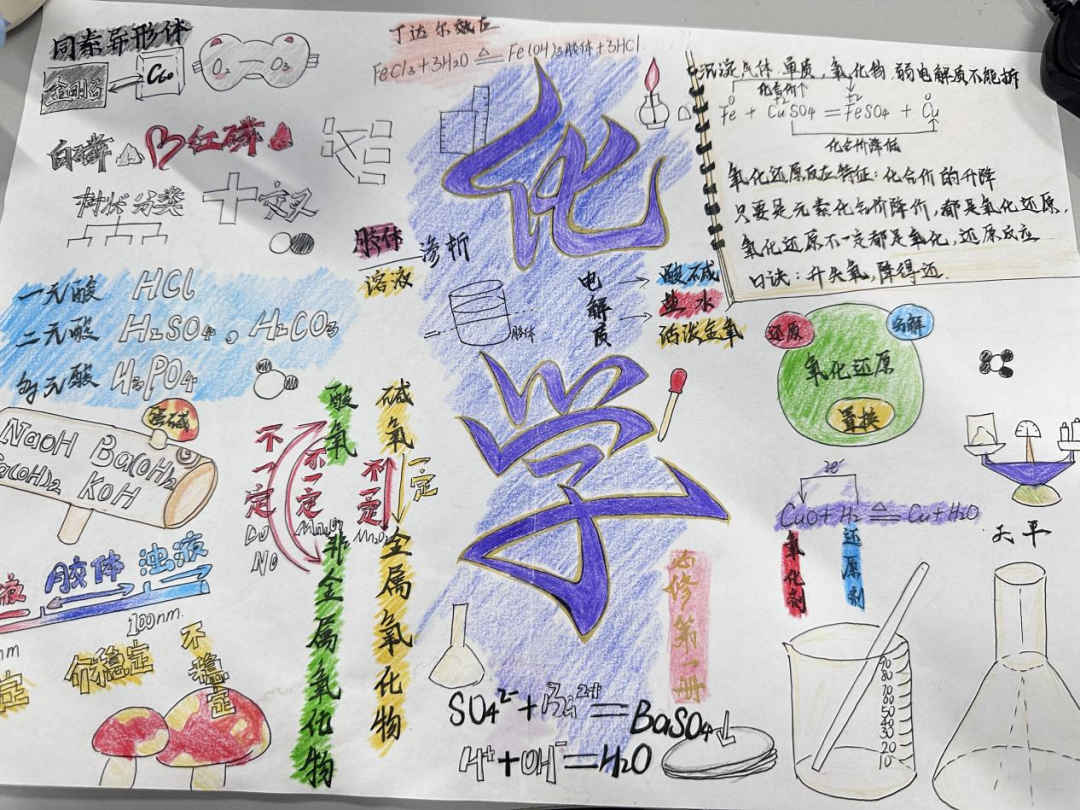 同素异形体
金刚石 C60
O2 O3
白磷 红磷
树状分类 交叉
丁达尔效应
FeCl3+3H2O △ Fe(OH)3胶体+3HCl
化学
沉淀 气体 单质, 氧化物, 弱电解质不能拆
化合价↑
0 +2 +2 0
Fe + CuSO4 = FeSO4 + Cu
化合价降低
氧化还原反应特征: 化合价的升降
只要是元素化合价降价, 都是氧化还原,
氧化还原不一定都是氧化, 还原反应
口诀: 升失氧, 降得还.
胶体 渗析
溶液
胶体
电解质
酸碱
盐 水
活泼金氧
一元酸 HCl
二元酸 H2SO4, H2CO3
多元酸 H3PO4
强碱
NaOH Ba(OH)2
Ca(OH)2 KOH
液 胶体 浊液
100nm.
nm
定 介稳定 不稳定
酸氧 不一定 不一定
NO
非金属氧化物
碱氧 不一定 一定
金属氧化物
还原 分解
氧化还原
置换
2e-
CuO+H2 △ Cu+H2O
氧化剂 还原剂
天平
必修第一册
SO4 2- + Ba2+ = BaSO4↓
H+ + OH- = H2O
90
80
70
60
50
40
30
20
10